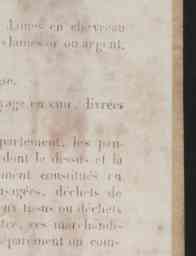 dames en chevreau
lames or ou argent,
se.
yage en cuir, livrées
partement, les pan-
dont le dessus et la
ment constitués en
usagées, déchets de
eux tissus ou déchets
tre, ces marchandi-
épartement un com-